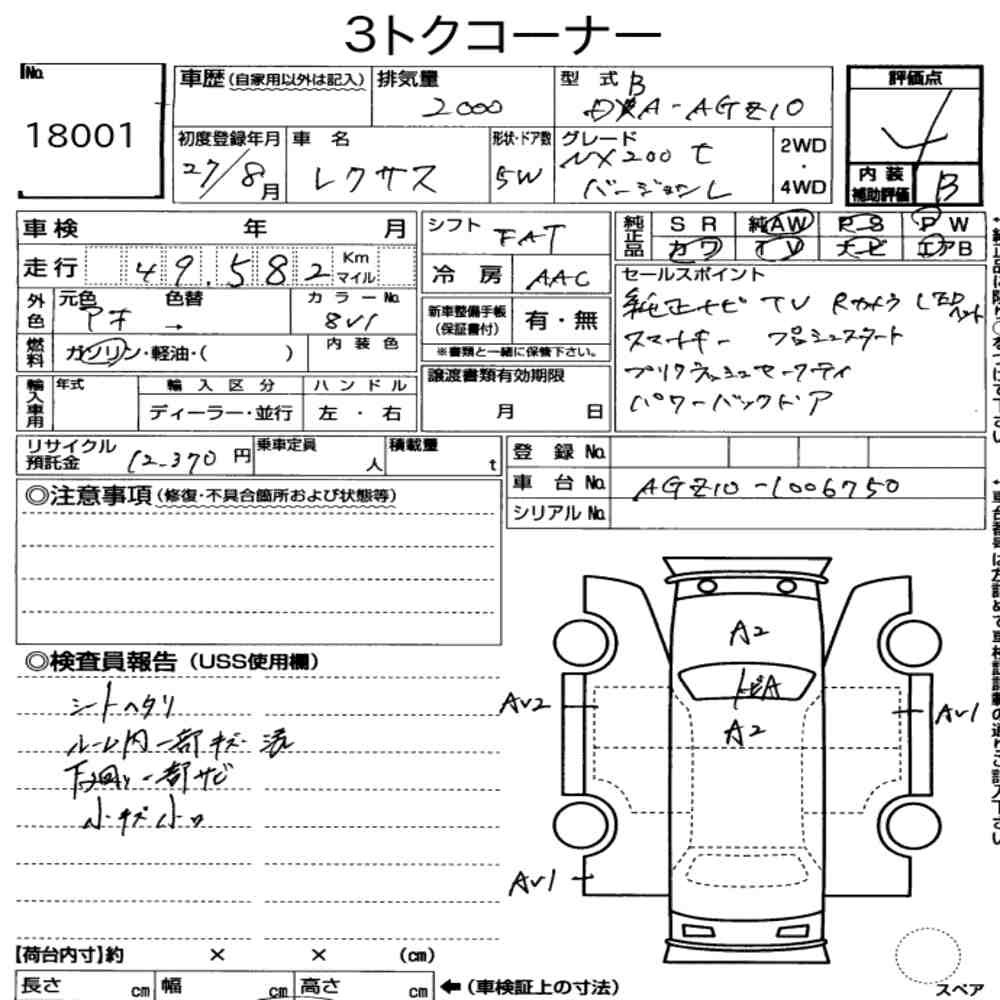 3トクコーナー
No.
18001
車歴(自家用以外は記入)
排気量
2000
型式
B
DBA-AGZ10
評価点
4
内装
補助評価
B
初度登録年月
27/8月
車名
レクサス
形状・ドア数
5W
グレード
NX200t
バージョンL
2WD
・
4WD
車検 年 月
走行 49,582 Km
マイル
外色
元色 色替
アオ →
カラーNo.
8V1
燃料
ガソリン・軽油・( )
内装色
輸入車用
年式
輸入区分
ディーラー・並行
ハンドル
左・右
シフト
FAT
冷房
AAC
新車整備手帳
(保証書付)
有・無
※書類と一緒に保管下さい。
譲渡書類有効期限
月 日
純正品
SR 純AW PS PW
カワ TV ナビ エアB
セールスポイント
純正ナビ TV Rカメラ LEDヘット
スマートキー プッシュスタート
プリクラッシュセーフティ
パワーバックドア
リサイクル
預託金
12,370円
乗車定員
人
積載量
t
登録No.
車台No.
AGZ10-1006750
シリアルNo.
◎注意事項(修復・不具合箇所および状態等)
◎検査員報告(USS使用欄)
シートヘタリ
ルーム内一部キズ
下回り一部サビ
小キズ小凹
A2
トビA
A2
AU2
AU1
AU1
【荷台内寸】約 × × (cm)
長さ cm 幅 cm 高さ cm
←(車検証上の寸法)
スペア